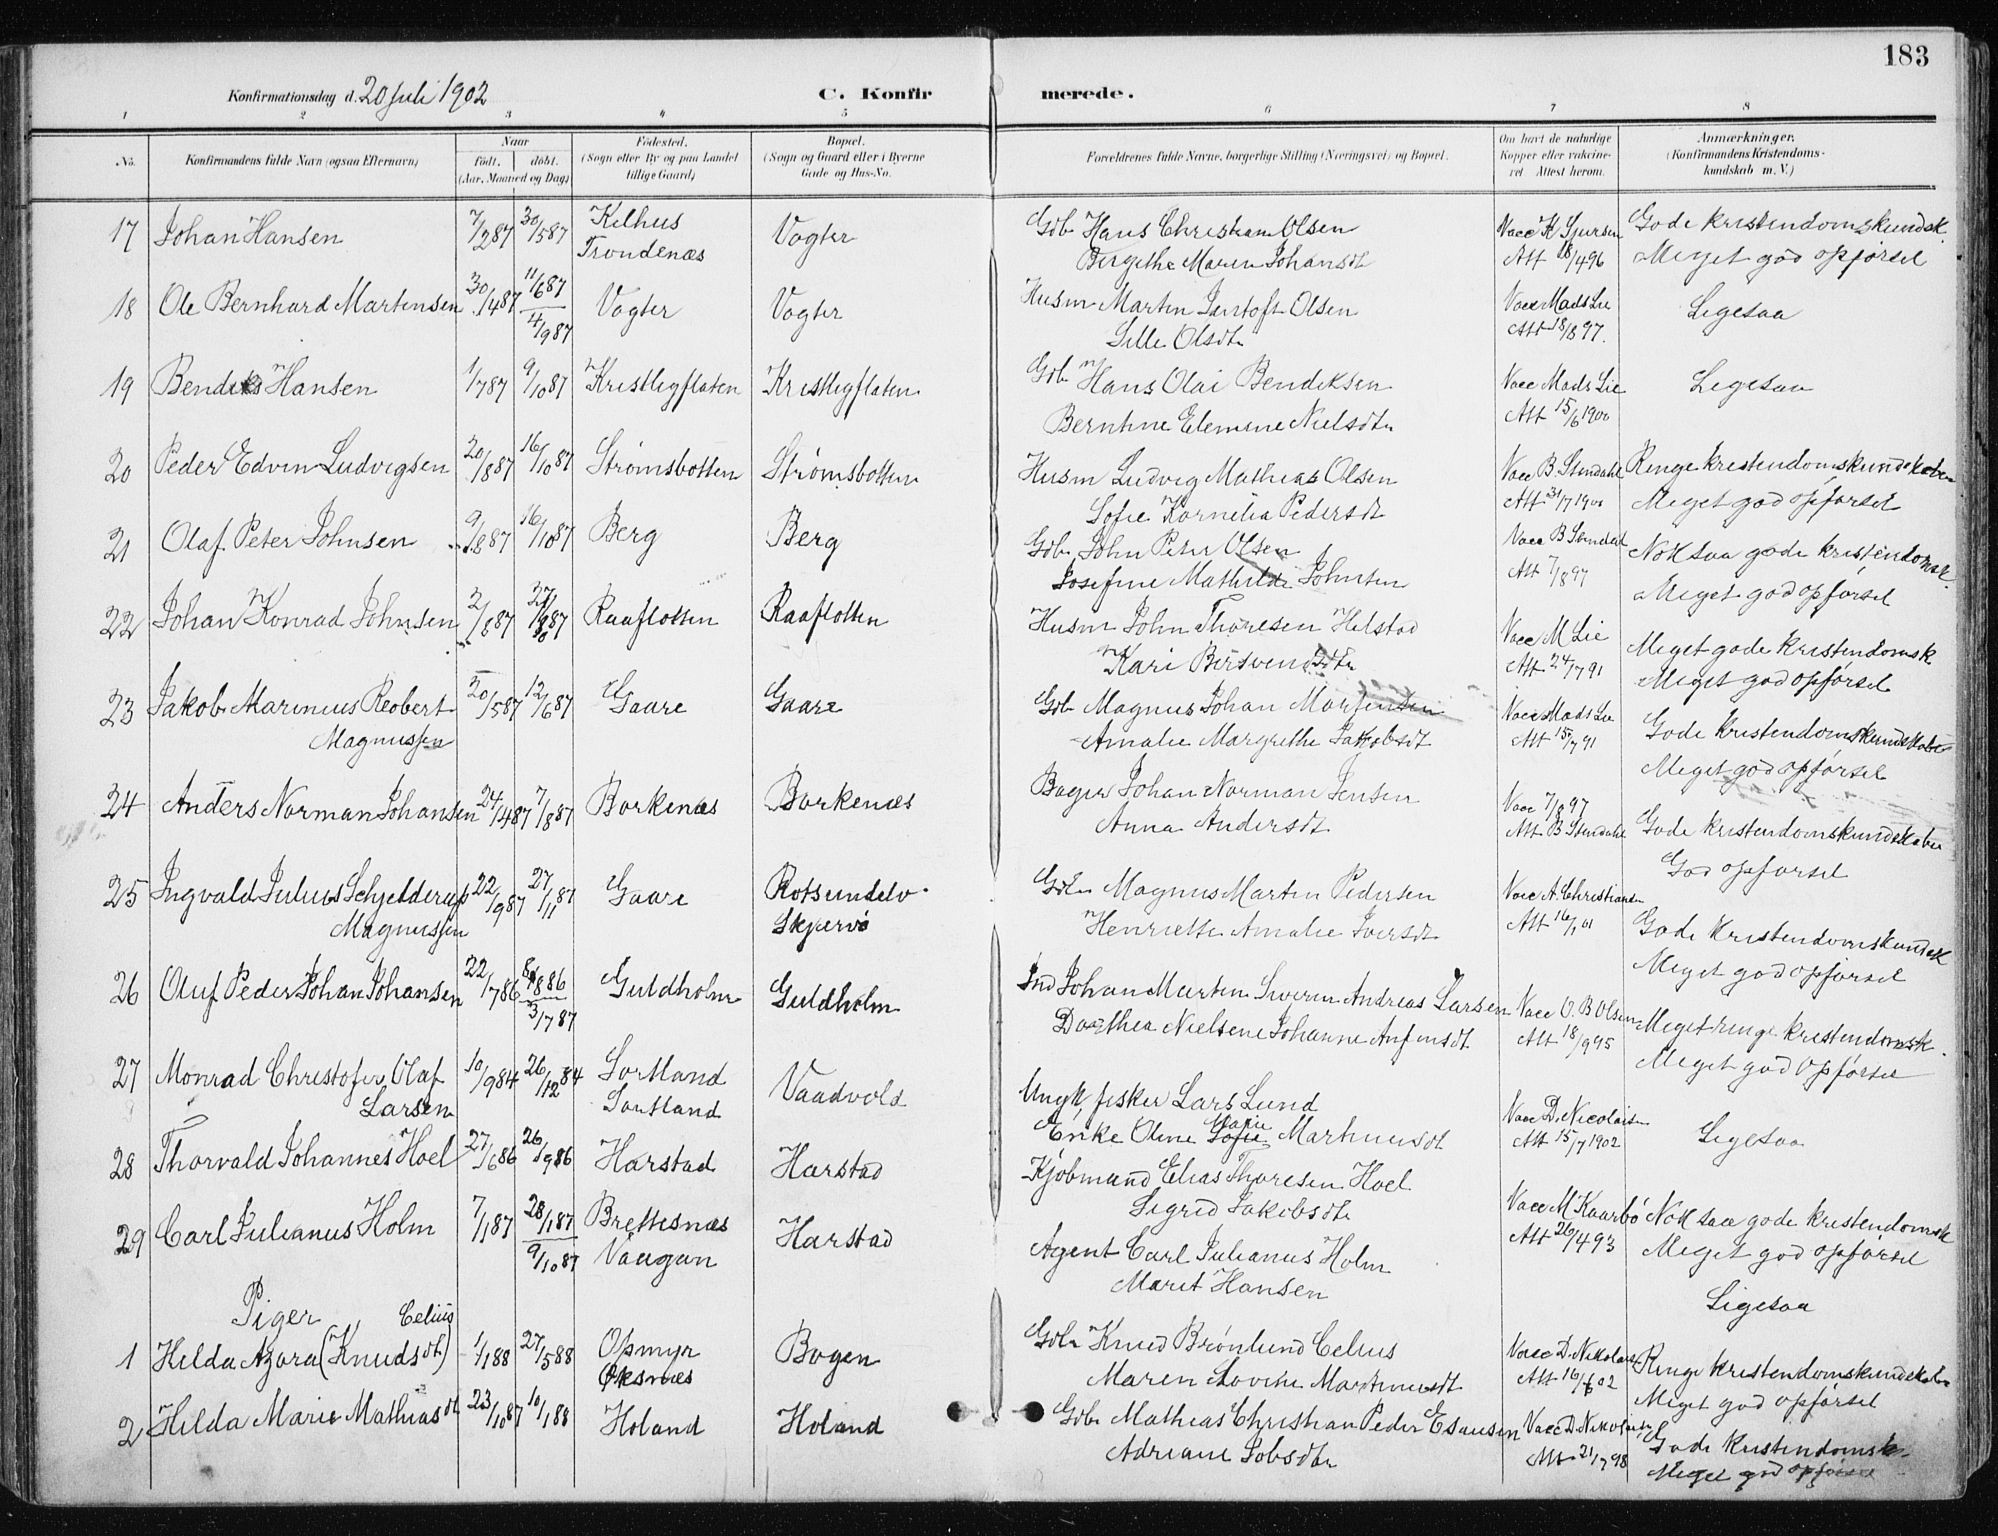 183
Konfirmationsdag d. 20 Juli 1902
C. Konfir merede.
1 2 3 4 5 6 7 8
No. Konfirmandens fulde Navn (ogsaa Efternavn) Naar født. døbt. (Aar, Maaned og Dag) Fødested. (Sogn eller By og paa Landet tillige Gaard) Bopæl. (Sogn og Gaard eller i Byerne Gade og Hus-No. Forældrenes fulde Navne, borgerlige Stilling (Næringsvei) og Bopæl. Om havt de naturlige Kopper eller vakcineret. Attest herom. Anmærkninger. (Konfirmandens Kristendomskundskab m. V.)
17 Johan Hansen 7/287 30/587 Kilhus Vogter Gdb Hans Christian Olsen Vacc K Sjursen Gode kristendomskundsk.
Trondenæs Bergethe Maren Johansdt Att 18/496 Meget god opførsel
18 Ole Bernhard Martensen 30/487 11/687 Vogter Vogter Husm Martin Jentoft Olsen Vacc Mads Lie Ligesaa
4/987 Sille Olsdtr Att 18/897.
19 Bendiks Hansen 1/787 9/1087 Kristligflaten Kristligflaten Gdb Hans Olai Bendiksen Vacc Mads Lie Ligesaa
Berntine Elemine Nielsdtr Att 15/6 1900
20 Peder Edvin Ludvigsen 20/887 16/1087 Strømsbotten Strømsbotten Husm Ludvig Mathias Olsen Vacc B. Stendahl Ringe kristendomskundskaber
Sofie Kornelia Pedersdt Att 31/7 1900 Meget god opførsel
21 Olaf Peter Johnsen 9/887 16/1087 Berg Berg Gdb John Peter Olsen Vacc B Stendal Nok saa gode kristendomsk.
Josefine Mathilde Johnsen Att 7/897 Meget god opførsel
22 Johan Konrad Johnsen 2/887 Raaflotten Raaflotten Husm John Thoresen Helstad Vacc M Lie Meget gode kristendomsk
Kari Bersvendsdtr Att 24/791 Meget god opførsel
23 Jakob Marinius Reobert 20/587 12/687 Gaare Gaare Gdb Magnus Johan Martensen Vacc Mads Lie Gode kristendomskundskaber
Magnussen Amalie Margrethe Jakobsdt Att 15/791 Meget god opførsel
24 Anders Norman Johansen 24/487 7/887 Borkenæs Borkenæs Bager Johan Norman Jensen Vacc 7/897 Gode kristendomskundskaber
Anna Andersdt Att B Stendahl God opførsel
25 Ingvald Julius Schjelderup 22/987 27/11 87 Gaare Rotsundelv Gdb Magnus Martin Pedersen Vacc A. Christiansen Gode kristendomskundsk
Magnussen Skjervø Henriette Amalie Iversdt Att 16/1 01 Meget god opførsel
26 Oluf Peder Johan Johansen 22/786 8/886 Guldholm Guldholm Ind Johan Martin Severin Andreas Larsen Vacc O. B Olsen Meget ringe kristendomsk.
3/787 Dorthea Nielsene Johanne Anfinsdt Att 18/995 Meget god opførsel
27 Monrad Christofer Olaf 10/984 26/12 84 Sortland Vaadvold Ungk, fisker Lars Lund Vacc D. Nicolaisen Ligesaa
Larsen Sortland Erike Oline Marie Sofie Martinusdt Att 15/7 1902
28 Thorvald Johannes Hoel 27/686 26/986 Harstad Harstad Kjøbmand Elias Thoresen Hoel Vacc M Kaarbø Nok saa gode kristendomsk
Sigrid Jakobsdtr Att 26/493 Meget god opførsel
29 Carl Julianus Holm 7/187 28/187 Brettesnæs Harstad Agent Carl Julianus Holm Ligesaa
9/1087 Vaagan Marit Hansen
Piger
Celius
1 Hilda Azora (Knudsdt) 1/188 27/588 Opmyr Bogen Gdb Knud Brønlund Celius Vacc D. Nikolaisen Ringe kristendomskundskaber
Øksnæs Maren Lovise Martinusdt Att 16/602 Meget god opførsel
2 Hilda Marie Mathiasdt 23/1087 10/188 Holand Holand Gdb Mathias Christian Peder Esausen Vacc D. Nikolaisen Gode kristendomsk.
Adriane Jobsdtr Att 21/798 Meget god opførsel